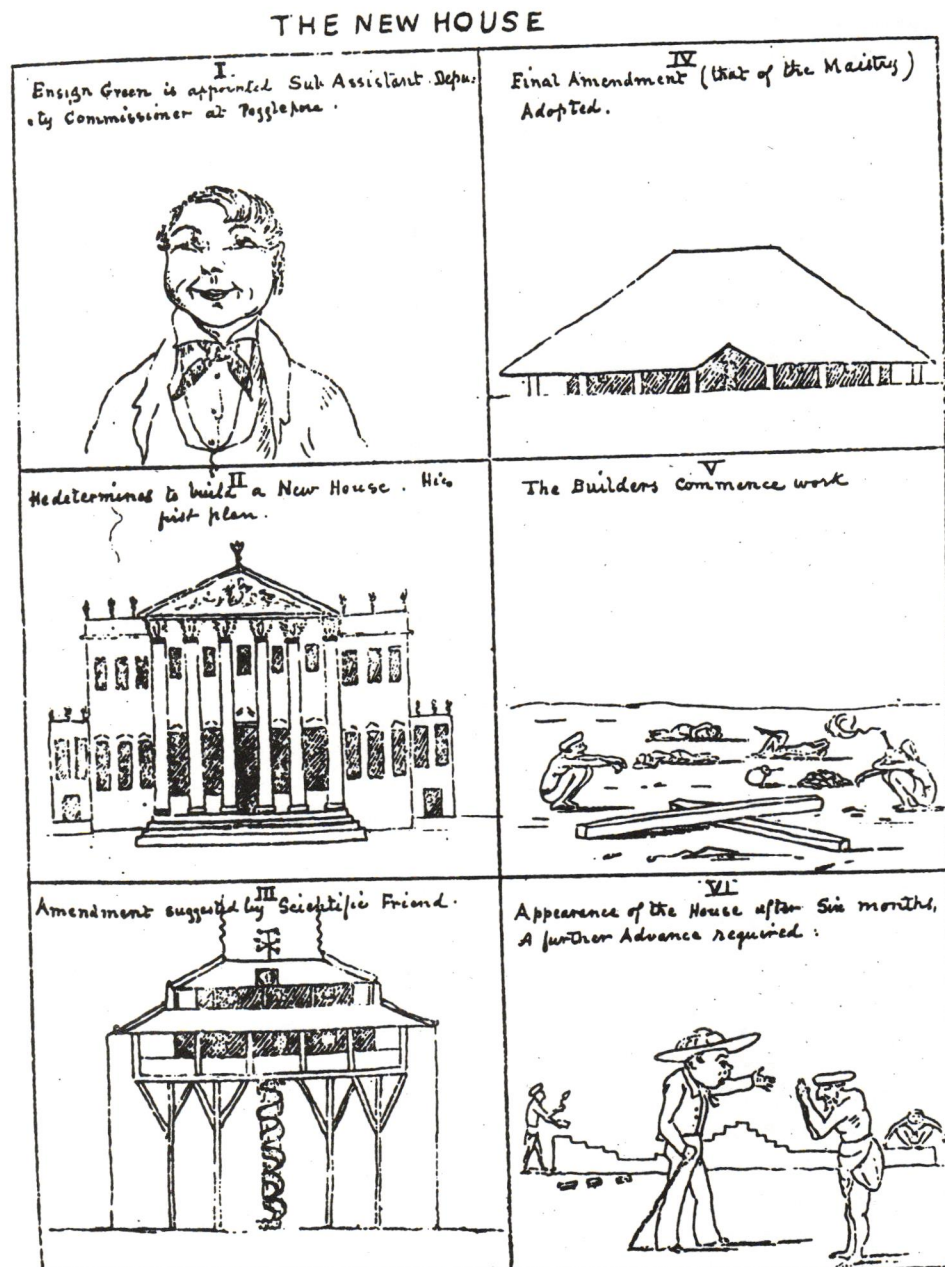 THE NEW HOUSE
I.
Ensign Green is appointed Sub Assistant Depu-
-ty Commissioner at Pogglepore.
II
He determines to build a New House. His
first plan.
III
Amendment suggested by Scientific Friend.
IV
Final Amendment (that of the Maistry)
Adopted.
V
The Builders Commence work
VI
Appearance of the House after Six months,
A further Advance required: